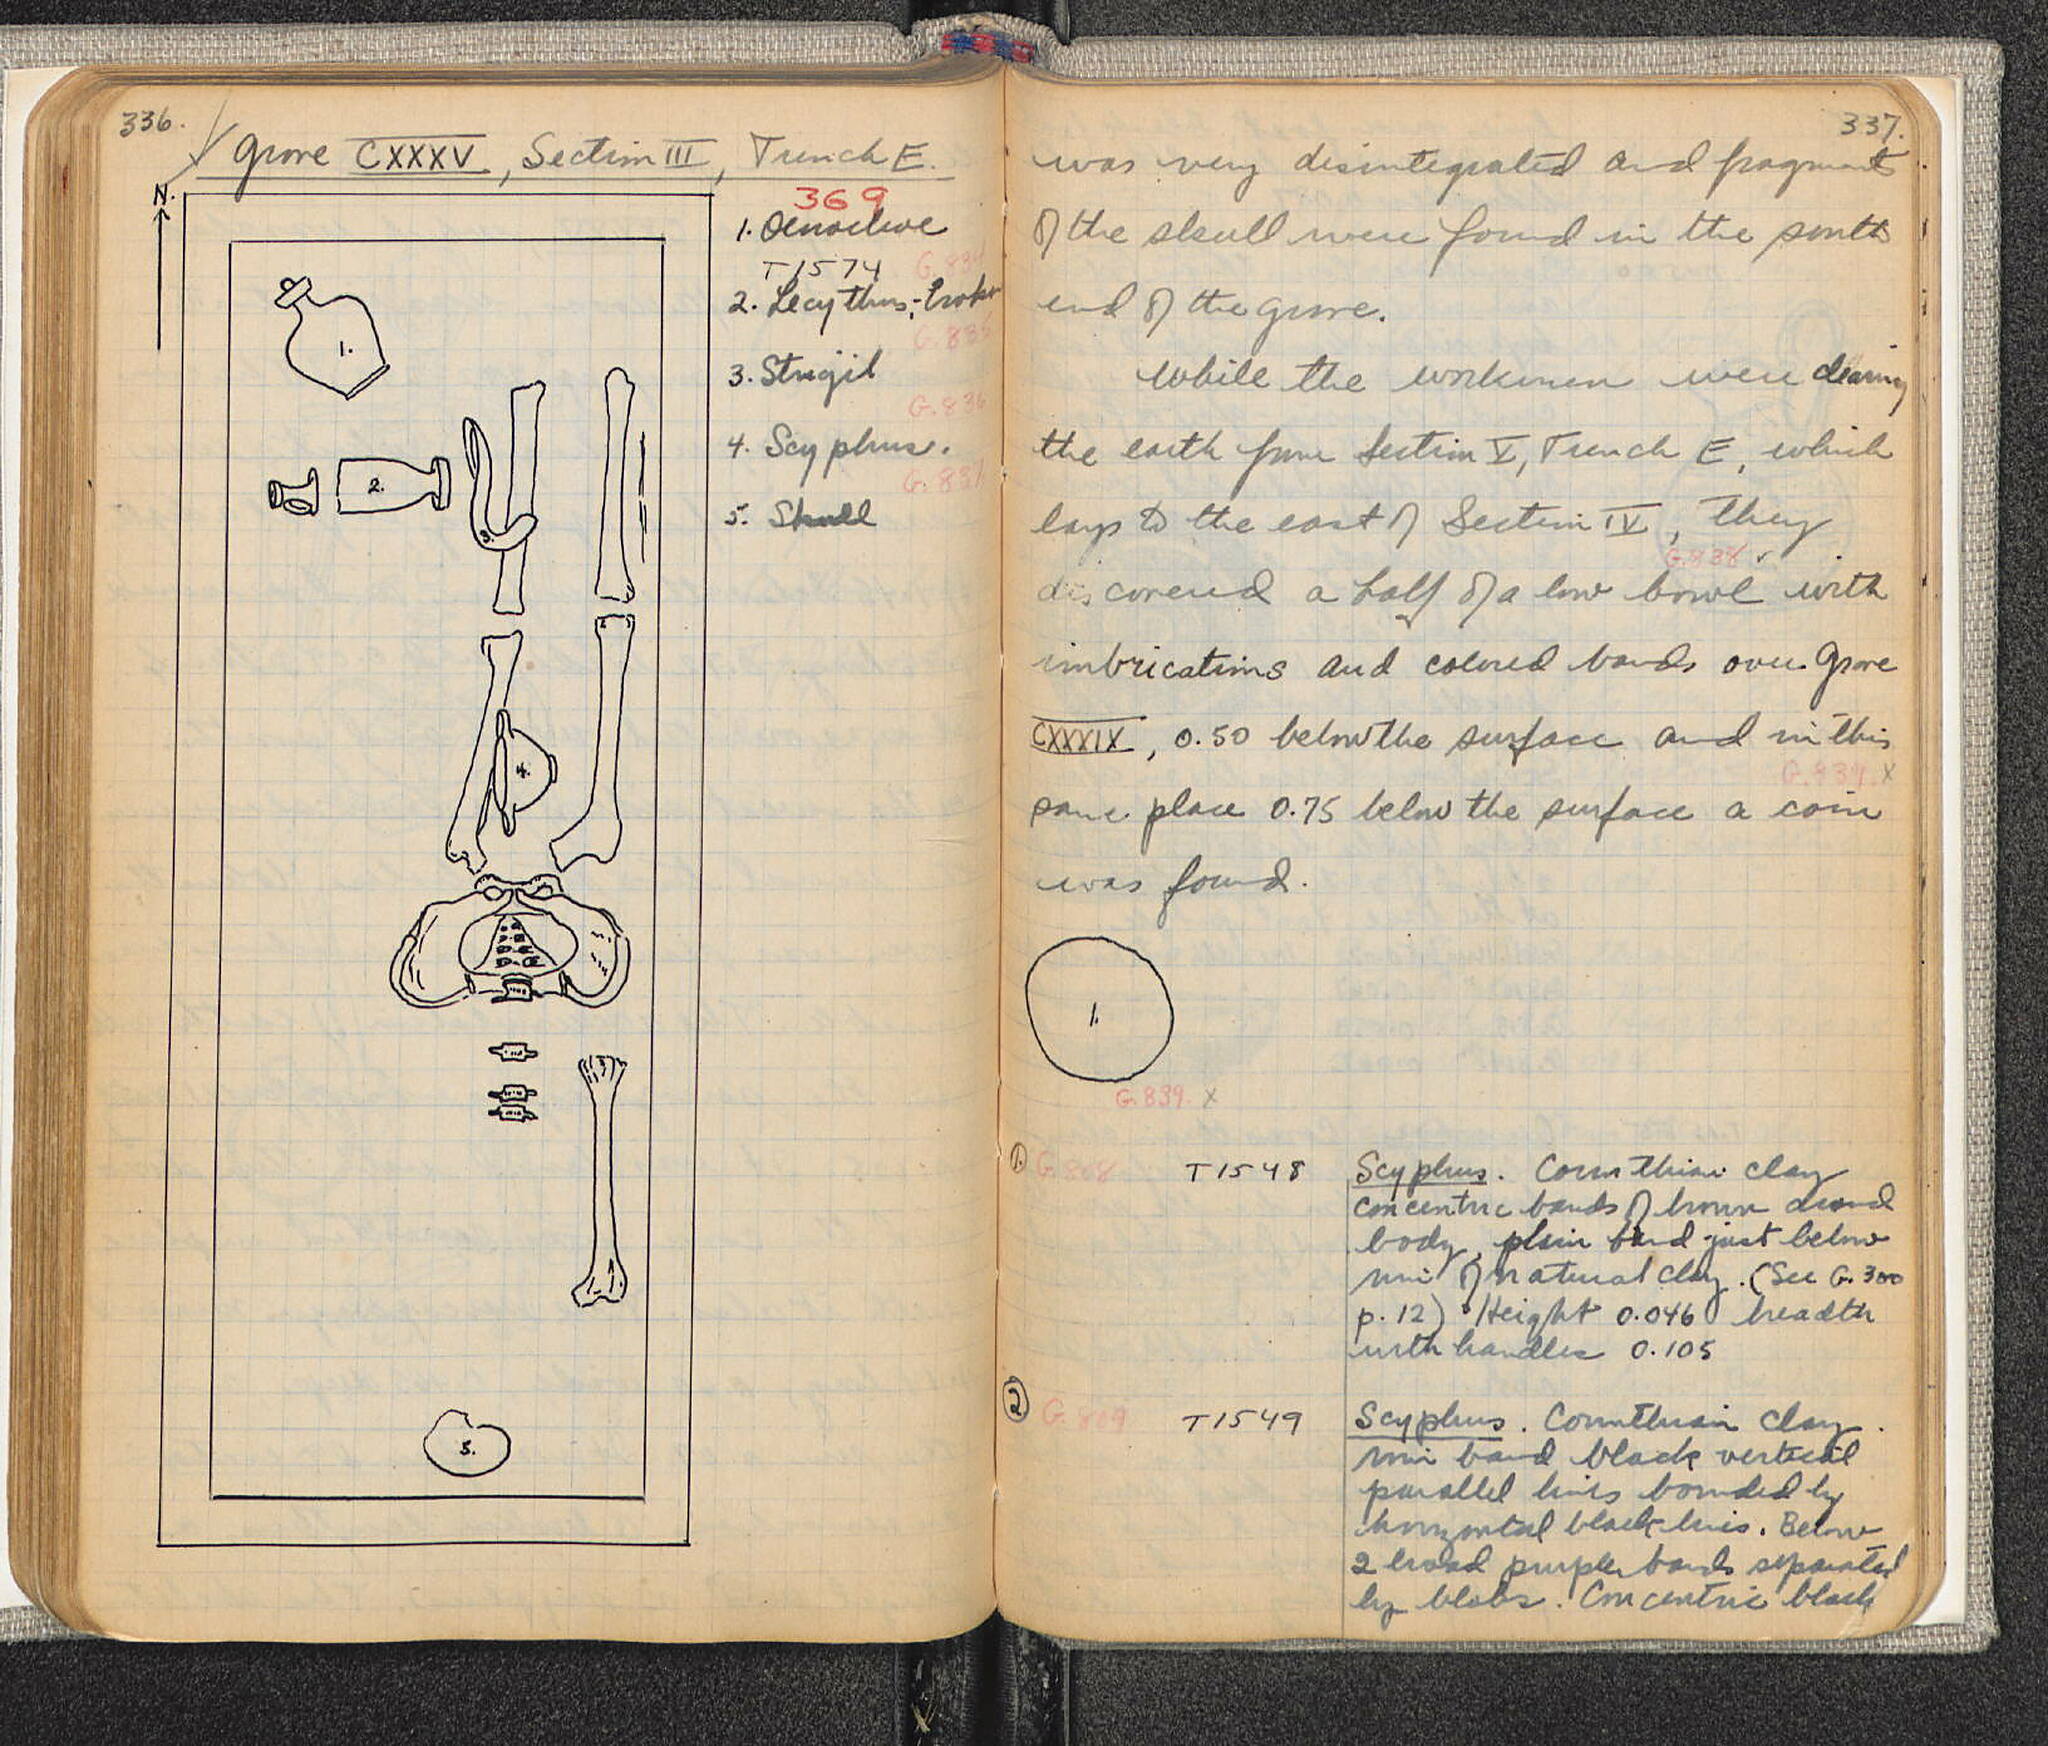 336.
Grave CXXXV, Section III, Trench E.
N.
369
1. Oenochoe
T1574
G.834
2. Lecythus; broken
G.835
3. Strigil
G.836
4. Scyphus.
G.837
5. Skull
1.
2.
3.
4.
5.
337.
was very disintegrated and fragments
of the skull were found in the south
end of the grave.
While the workmen were clearing
the earth from Section V, Trench E, which
lays to the east of Section IV, they
G.838 ✓
discovered a half of a low bowl with
imbrications and colored bands over Grave
CXXXIX, 0.50 below the surface and in this
G.839. X
same place 0.75 below the surface a coin
was found.
1.
G.839. X
1. G.808 T1548 Scyphus. Corinthian clay
concentric bands of brown around
body, plain band just below
rim of natural clay. (See G.300
p.12) Height 0.046 breadth
with handles 0.105
2 G.809 T1549 Scyphus. Corinthian clay.
rim band black vertical
parallel lines bounded by
horizontal black lines. Below
2 broad purple bands separated
by blobs. Concentric black